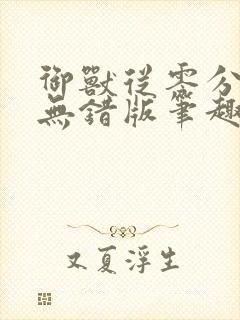 御獸從零分
無錯版筆趣
又夏浮生